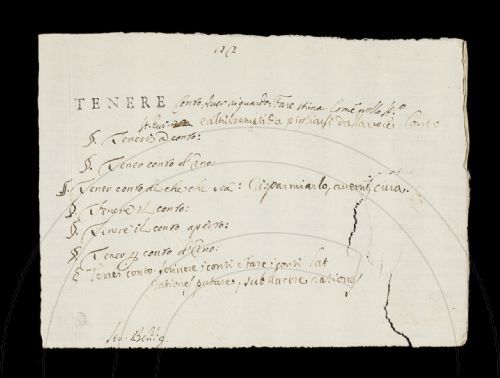 TENERE Conto, aver riguardo: Fare stima Come nello
ed altri esempli da pigliarsi dalla voce Conto
§. Tenere a conto:
§. Tener conto d'Uno:
§. Tener conto di che che sia: Risparmiarlo, averne cura.
§. Tenere il conto:
§. Tenere il conto aperto:
§. Tener conto d'Uno:
§. Tener conto, scrivere i conti e fare i conti Lat
ratione putare, subducere rationes